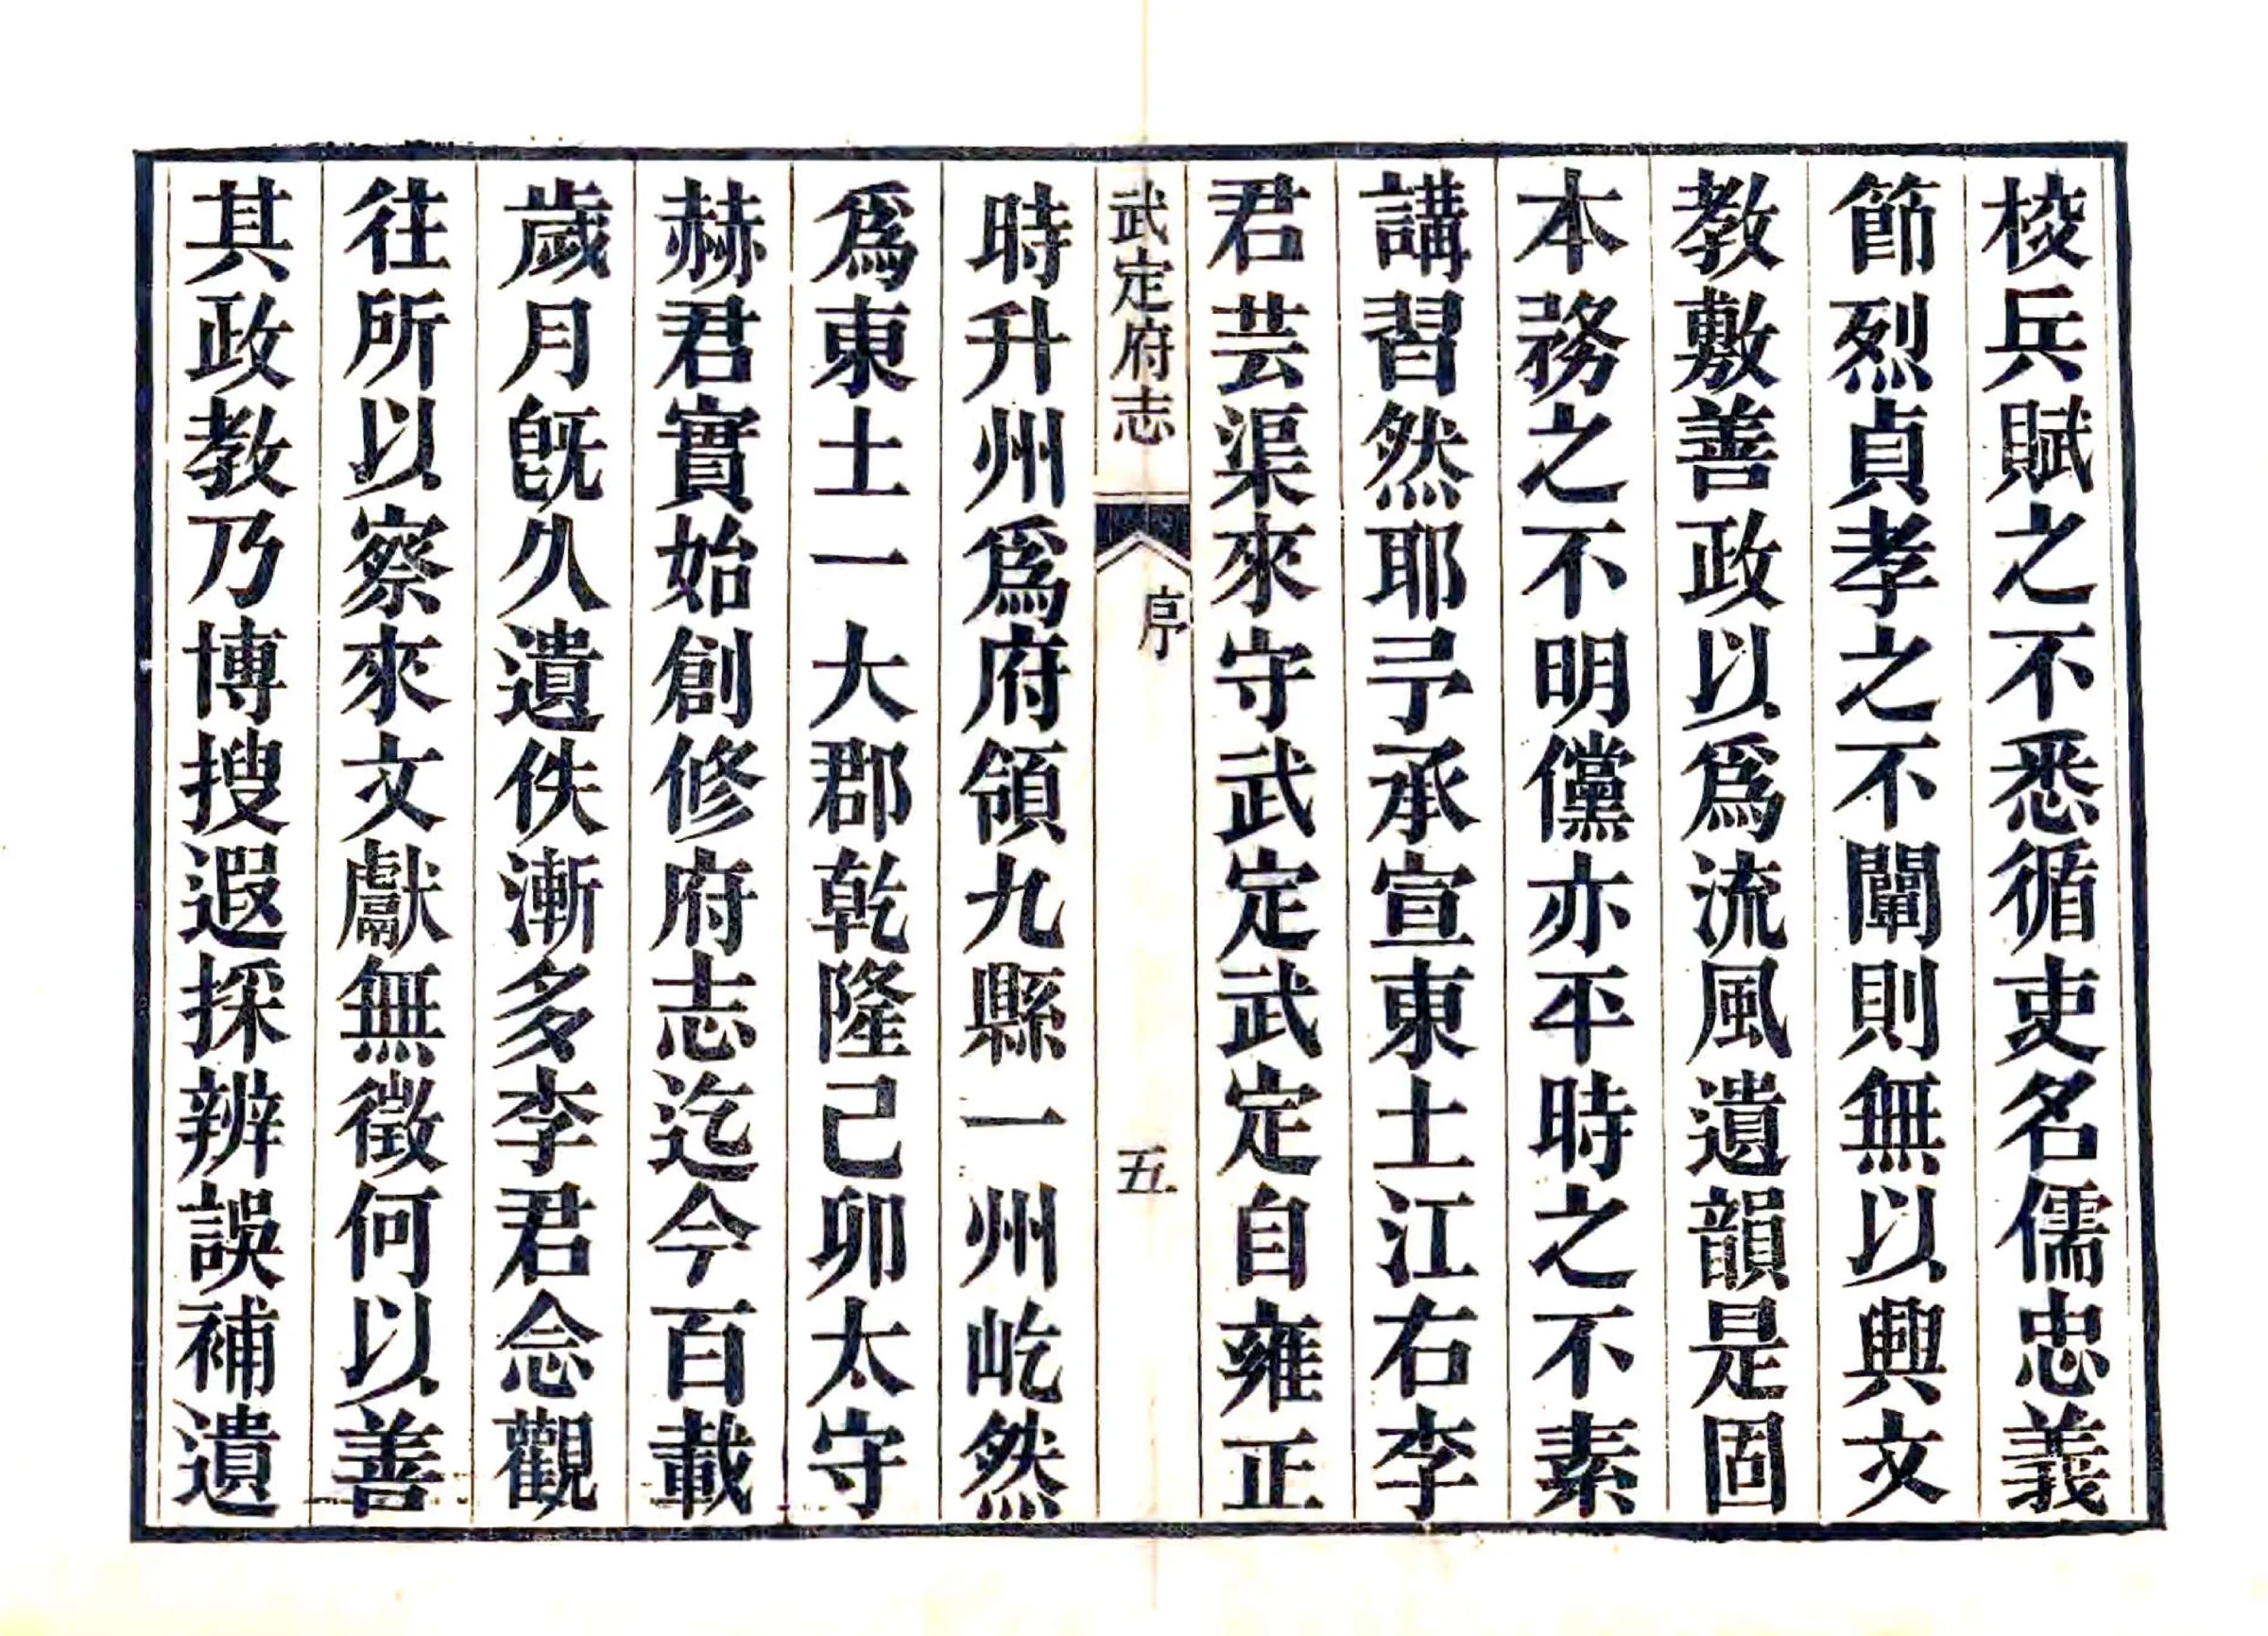 梭兵賦之不悉循吏名儒忠義
節烈貞孝之不闡則無以興文
教敷善政以爲流風遺韻是固
本務之不明儻亦平時之不素
講習然耶予承宣東土江右李
君芸渠來守武定武定自雍正
武定府志
序
五
時升州爲府領九縣一州屹然
爲東土一大郡乾隆己卯太守
赫君實始創修府志迄今百載
歲月旣久遺佚漸多李君念觀
往所以察來文獻無徵何以善
其政教乃博搜遐採辨誤補遺